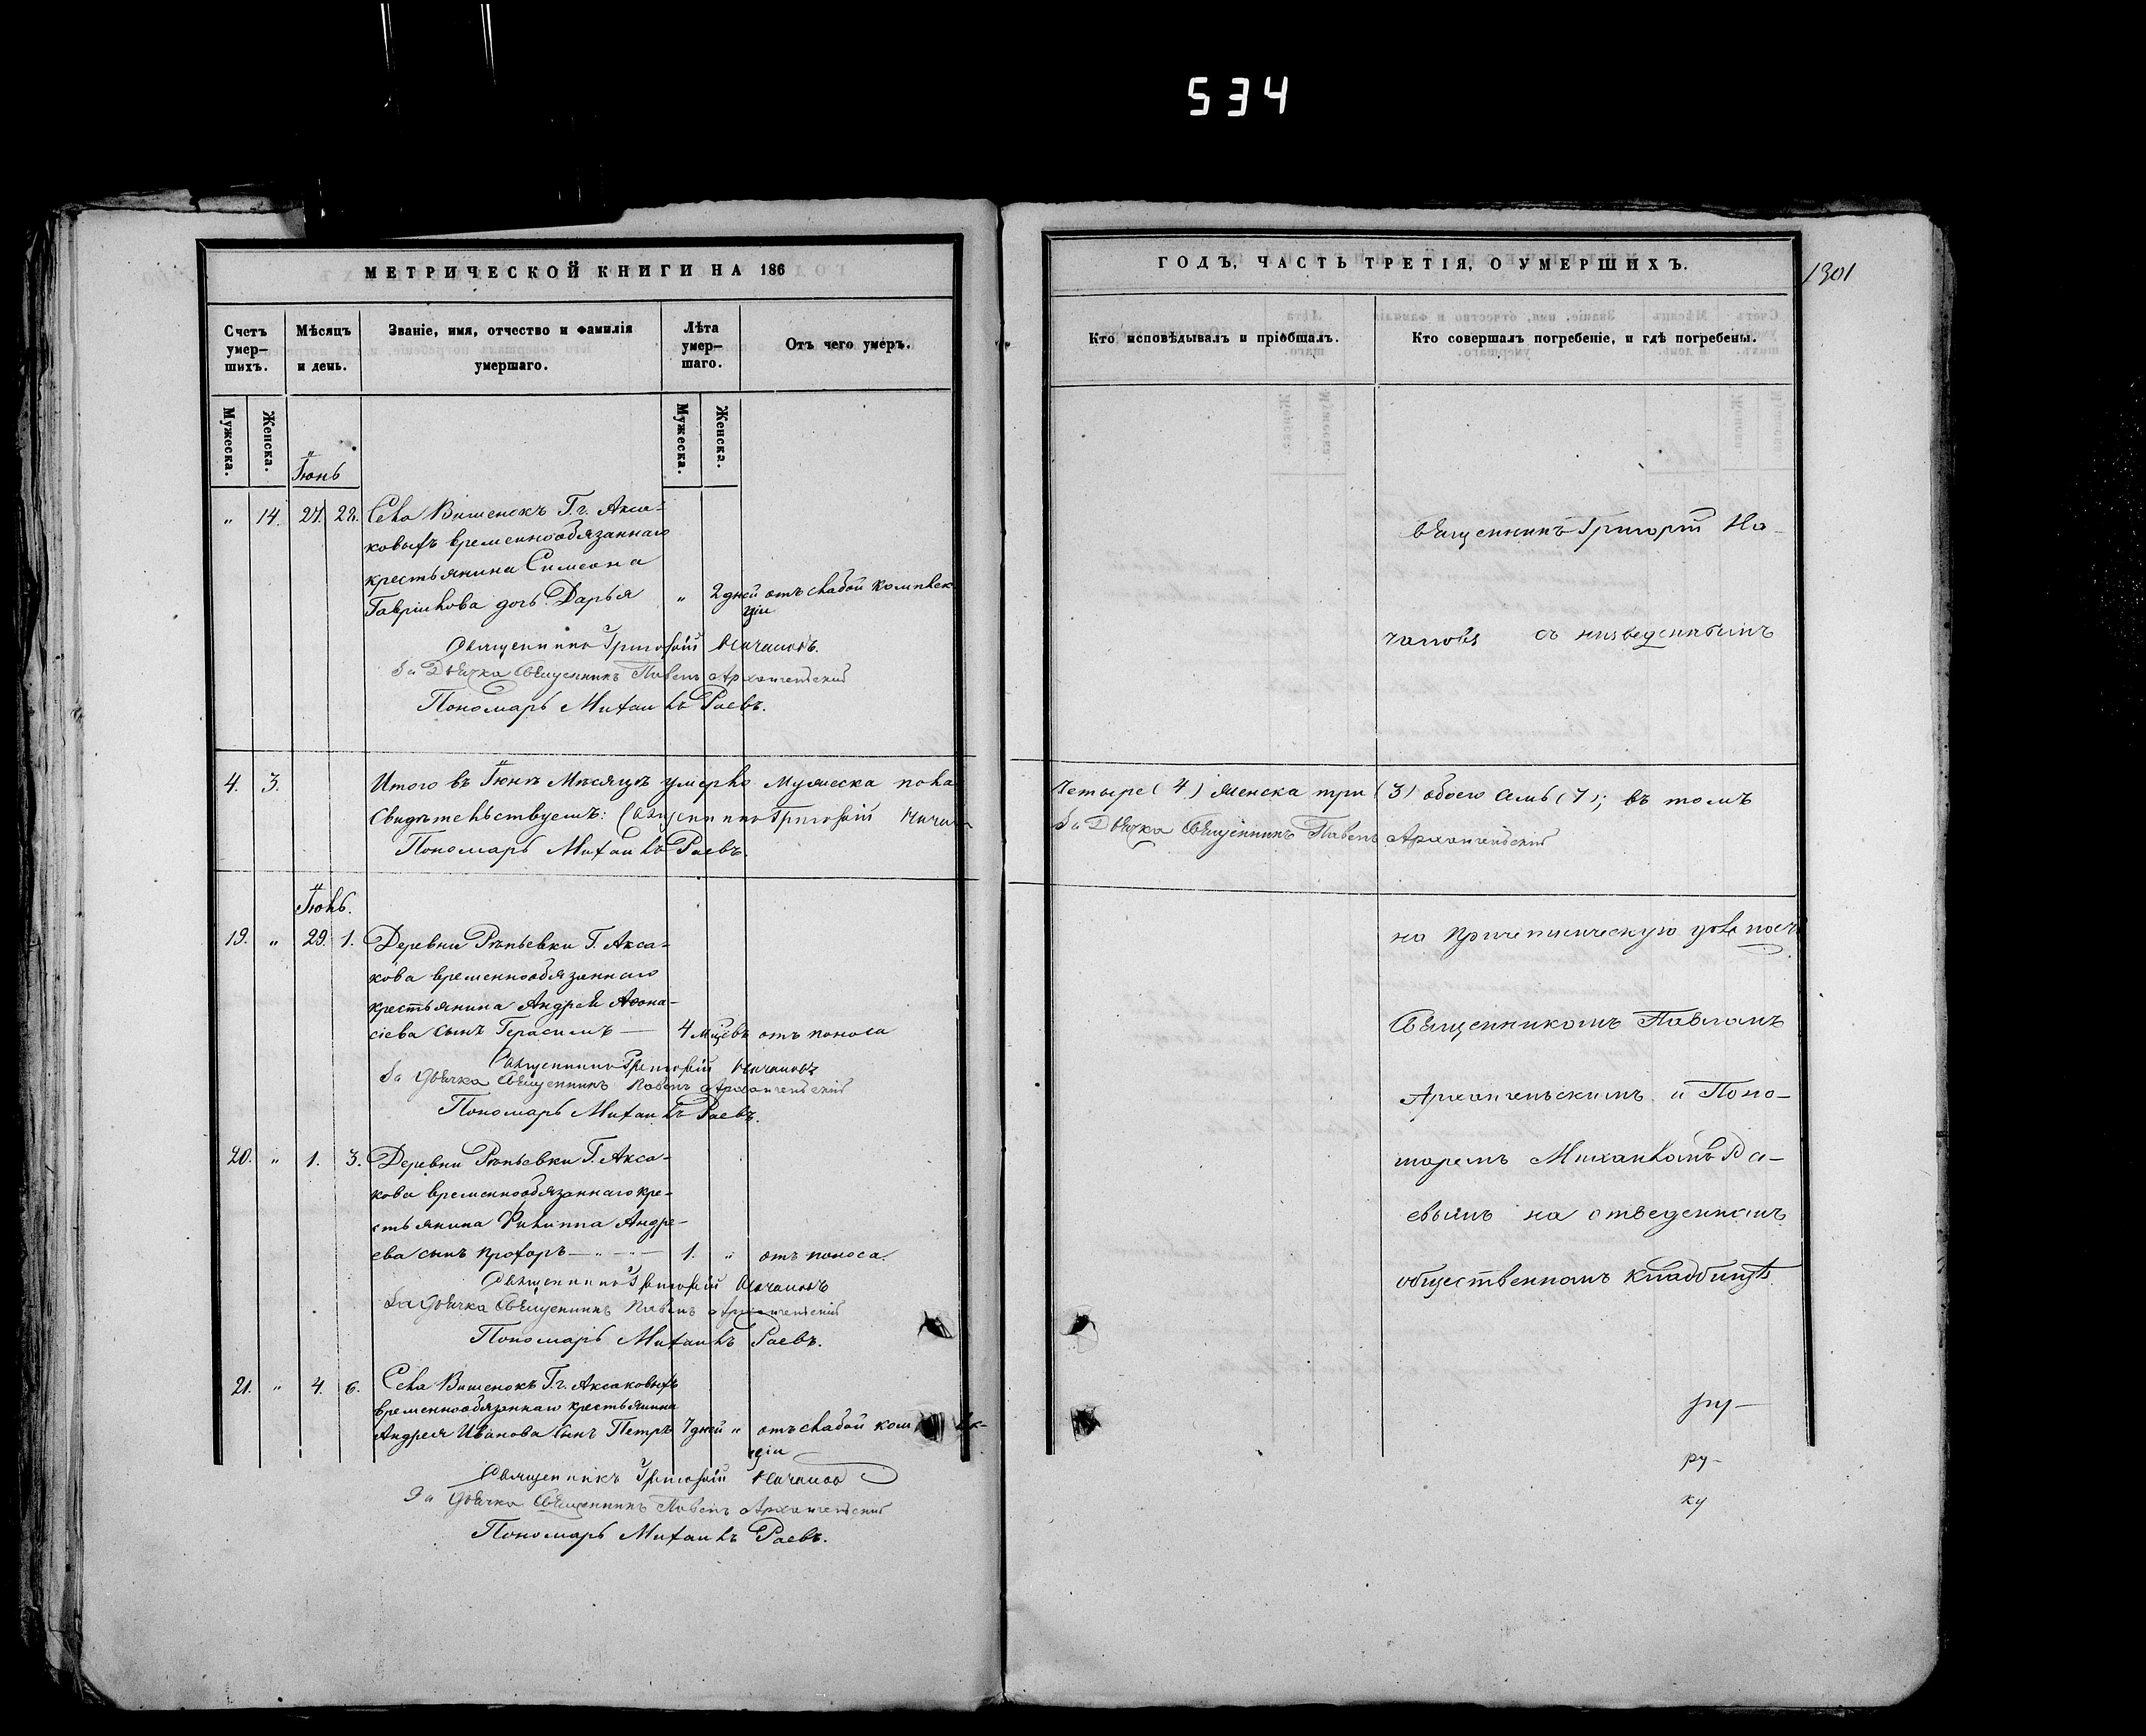 534
МЕТРИЧЕСКОЙ КНИГИ НА 186
Счетъ умер-шихъ.
Мѣсяцъ и день.
Званіе, имя, отчество и фамилія умершаго.
Лѣта умер-шаго.
Отъ чего умеръ.
Мужеска.
Женска.
Мужеска.
Женска.
Іюнь
" 14. 27. 28. Села Вишенокъ Г.г. Акса-
ковыхъ временнообязаннаго
крестьянина Симеона
Гаврилова дочь Дарья " 2 дней отъ слабой комплек
ціи
Священникъ Григорій Началовъ.
За Дьячка Священникъ Павелъ Архангельскій
Пономарь Михаилъ Раевъ.
4. 3. Итого въ Іюнѣ Мѣсяцѣ умерло Мужеска пола
Свидѣтельствуемъ: Священникъ Григорій
Пономарь Михаилъ Раевъ.
Іюль.
19. " 29. 1. Деревни Рѣпьевки Г. Акса-
кова временнообязаннаго
крестьянина Андрея Афона-
сіева сынъ Герасимъ — 4 мцевъ отъ поноса
Священникъ Григорій Началовъ
За Дьячка Священникъ Павелъ Архангельскій
Пономарь Михаилъ Раевъ.
20. " 1. 3. Деревни Рѣпьевки Г. Акса-
кова временнообязаннаго кре-
стьянина Филиппа Андре-
ева сынъ Прохоръ — " — 1. " отъ поноса.
Священникъ Григорій Началовъ
За Дьячка Священникъ Павелъ Архангельскій
Пономарь Михаилъ Раевъ.
21. " 4. 6. Села Вишенокъ Г.г. Аксаковыхъ
временнообязаннаго крестьянина
Андрея Иванова сынъ Петръ 7 дней " отъ слабой комплек-
ціи
Священникъ Григорій Началовъ
За Дьячка Священникъ Павелъ Архангельскій
Пономарь Михаилъ Раевъ.
ГОДЪ, ЧАСТЬ ТРЕТІЯ, О УМЕРШИХЪ.
1301
Кто исповѣдывалъ и пріобщалъ.
Кто совершалъ погребеніе, и гдѣ погребены.
Священникъ Григорій На-
чаловъ съ
Четыре (4) женска три (3) обоего семь (7); въ томъ
За Дьячка Священникъ Павелъ Архангельскій
на
Священникомъ Павломъ
Архангельскимъ и Поно-
маремъ Михаиломъ Ра-
евымъ на отведенномъ
общественномъ кладбищѣ.
ру-
ру-
ку